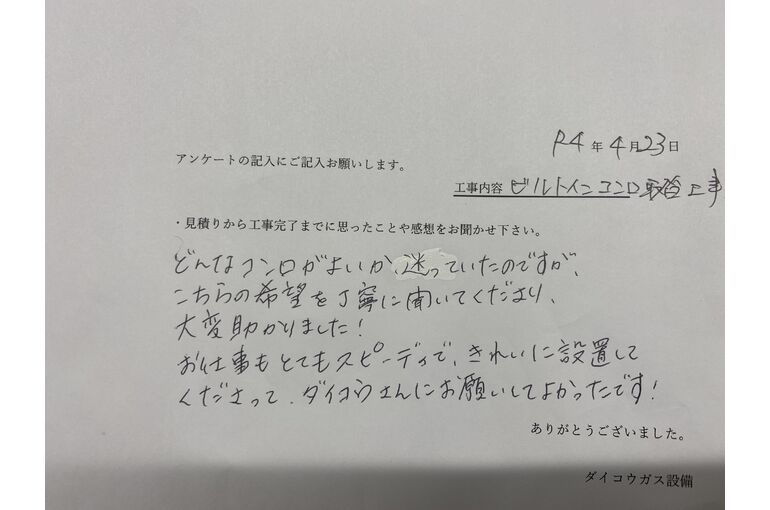 R4年4月23日
アンケートの記入にご記入お願いします。
工事内容 ビルトインコンロ取替工事
・見積りから工事完了までに思ったことや感想をお聞かせ下さい。
どんなコンロがよいか、迷っていたのですが、
こちらの希望を丁寧に聞いてくださり、
大変助かりました！
お仕事もとてもスピーディで、きれいに設置して
くださって、ダイコウさんにお願いしてよかったです！
ありがとうございました。
ダイコウガス設備